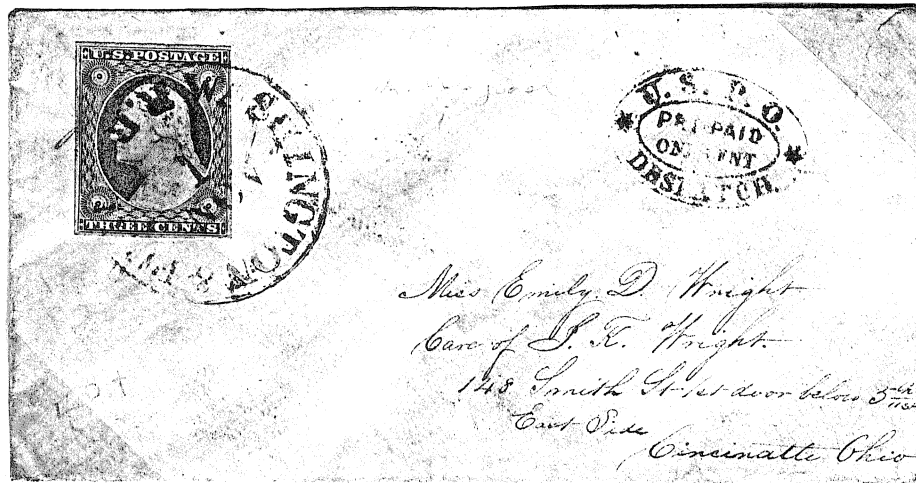 U.S. POSTAGE
THREE CENTS
U. S. P. O.
PRE-PAID
ONE CENT
DESPATCH.
Miss Emily D. Wright
Care of S. K. Wright.
148 Smith St 1st door below 5th
East Side
Cincinatti Ohio